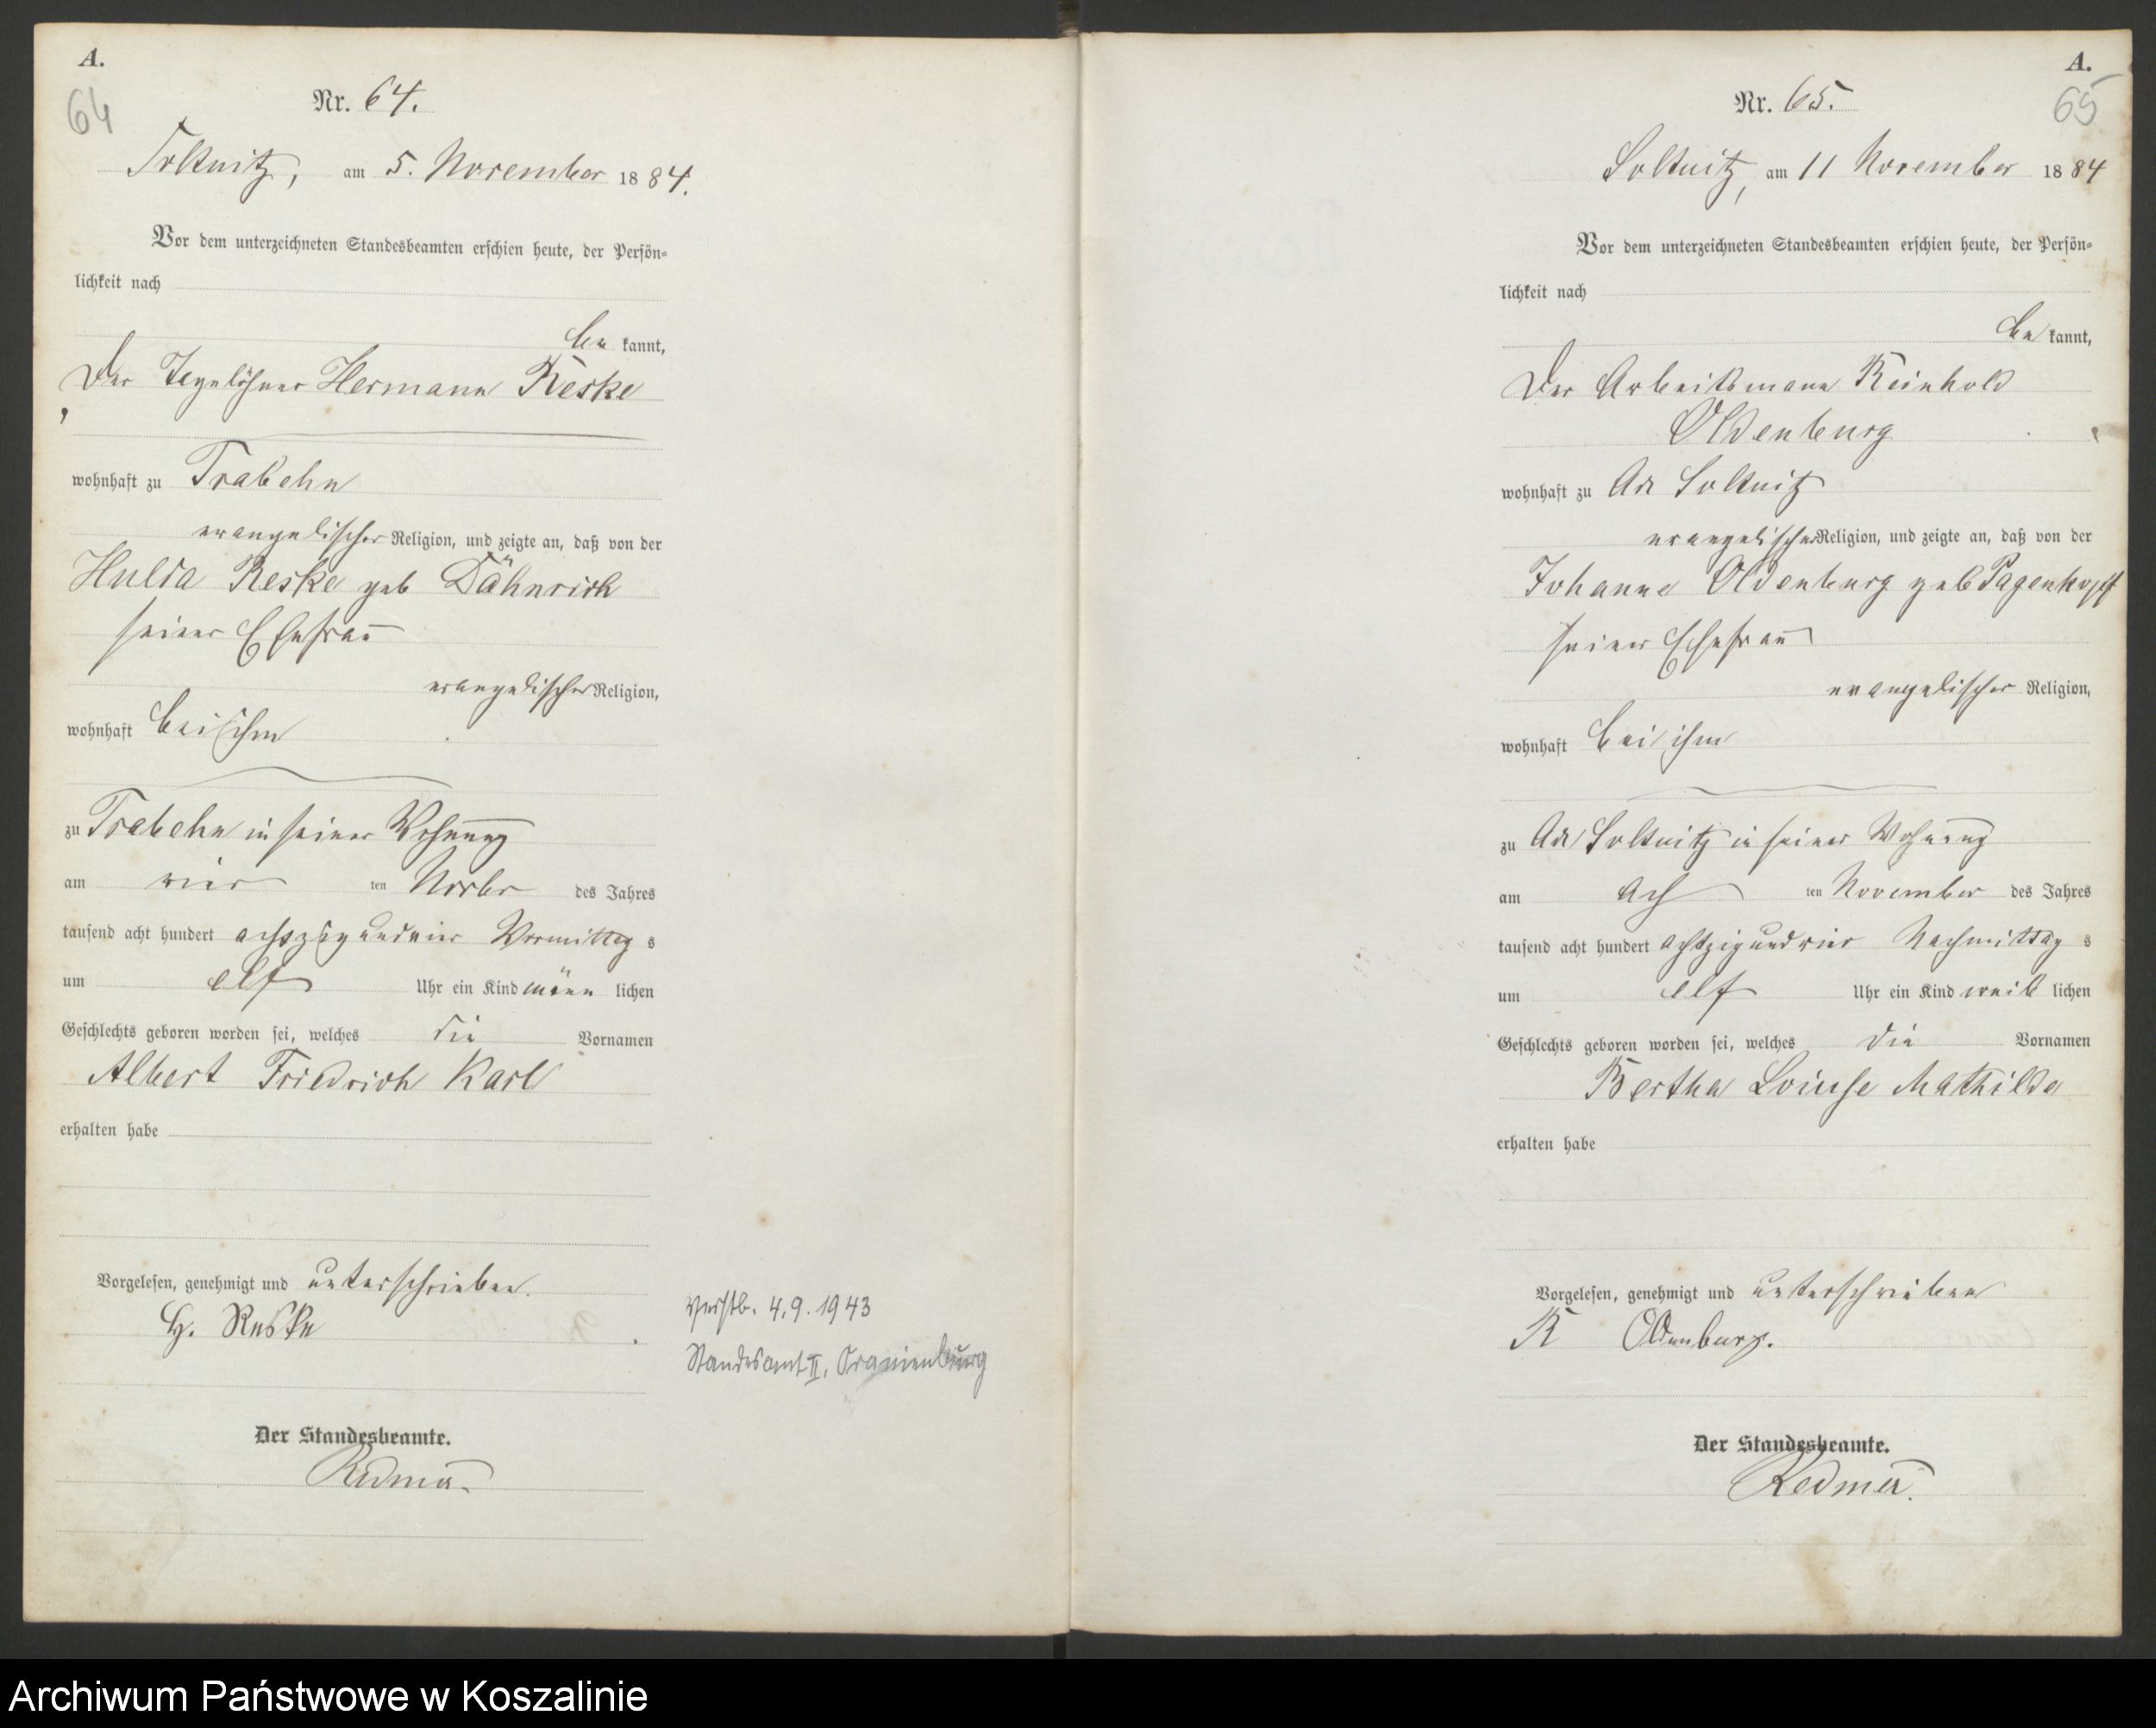 A.
64
Nr. 64.
Soltnitz, am 5. November 1884.
Vor dem unterzeichneten Standesbeamten erschien heute, der Persön-
lichkeit nach
be kannt,
Der Tagelöhner Hermann Reske
wohnhaft zu Trabehn
evangelischer Religion, und zeigte an, daß von der
Hulda Reske geb Dähnrich
seiner Ehefrau
evangelischer Religion,
wohnhaft bei ihm
zu Trabehn in seiner Wohnung
am vier ten Novbr des Jahres
tausend acht hundert achtzig und vier Vormittag s
um elf Uhr ein Kind männ lichen
Geschlechts geboren worden sei, welches die Vornamen
Albert Friedrich Karl
erhalten habe
Vorgelesen, genehmigt und unterschrieben.
H. Reske
Verstb. 4.9.1943
Standesamt II, Oranienburg
Der Standesbeamte.
A.
65
Nr. 65.
Soltnitz, am 11 November 1884
Vor dem unterzeichneten Standesbeamten erschien heute, der Persön-
lichkeit nach
be kannt,
Der Arbeitsmann Reinhold
Oldenburg
wohnhaft zu Adl Soltnitz
evangelischer Religion, und zeigte an, daß von der
Johanne Oldenburg geb Pagenkopf
seiner Ehefrau
evangelischer Religion,
wohnhaft bei ihm
zu Adl Soltnitz in seiner Wohnung
am ach ten November des Jahres
tausend acht hundert achtzig und vier Nachmittag s
um elf Uhr ein Kind weib lichen
Geschlechts geboren worden sei, welches die Vornamen
Bertha Louise Mathilde
erhalten habe
Vorgelesen, genehmigt und unterschrieben
R Oldenburg.
Der Standesbeamte.
Archiwum Państwowe w Koszalinie